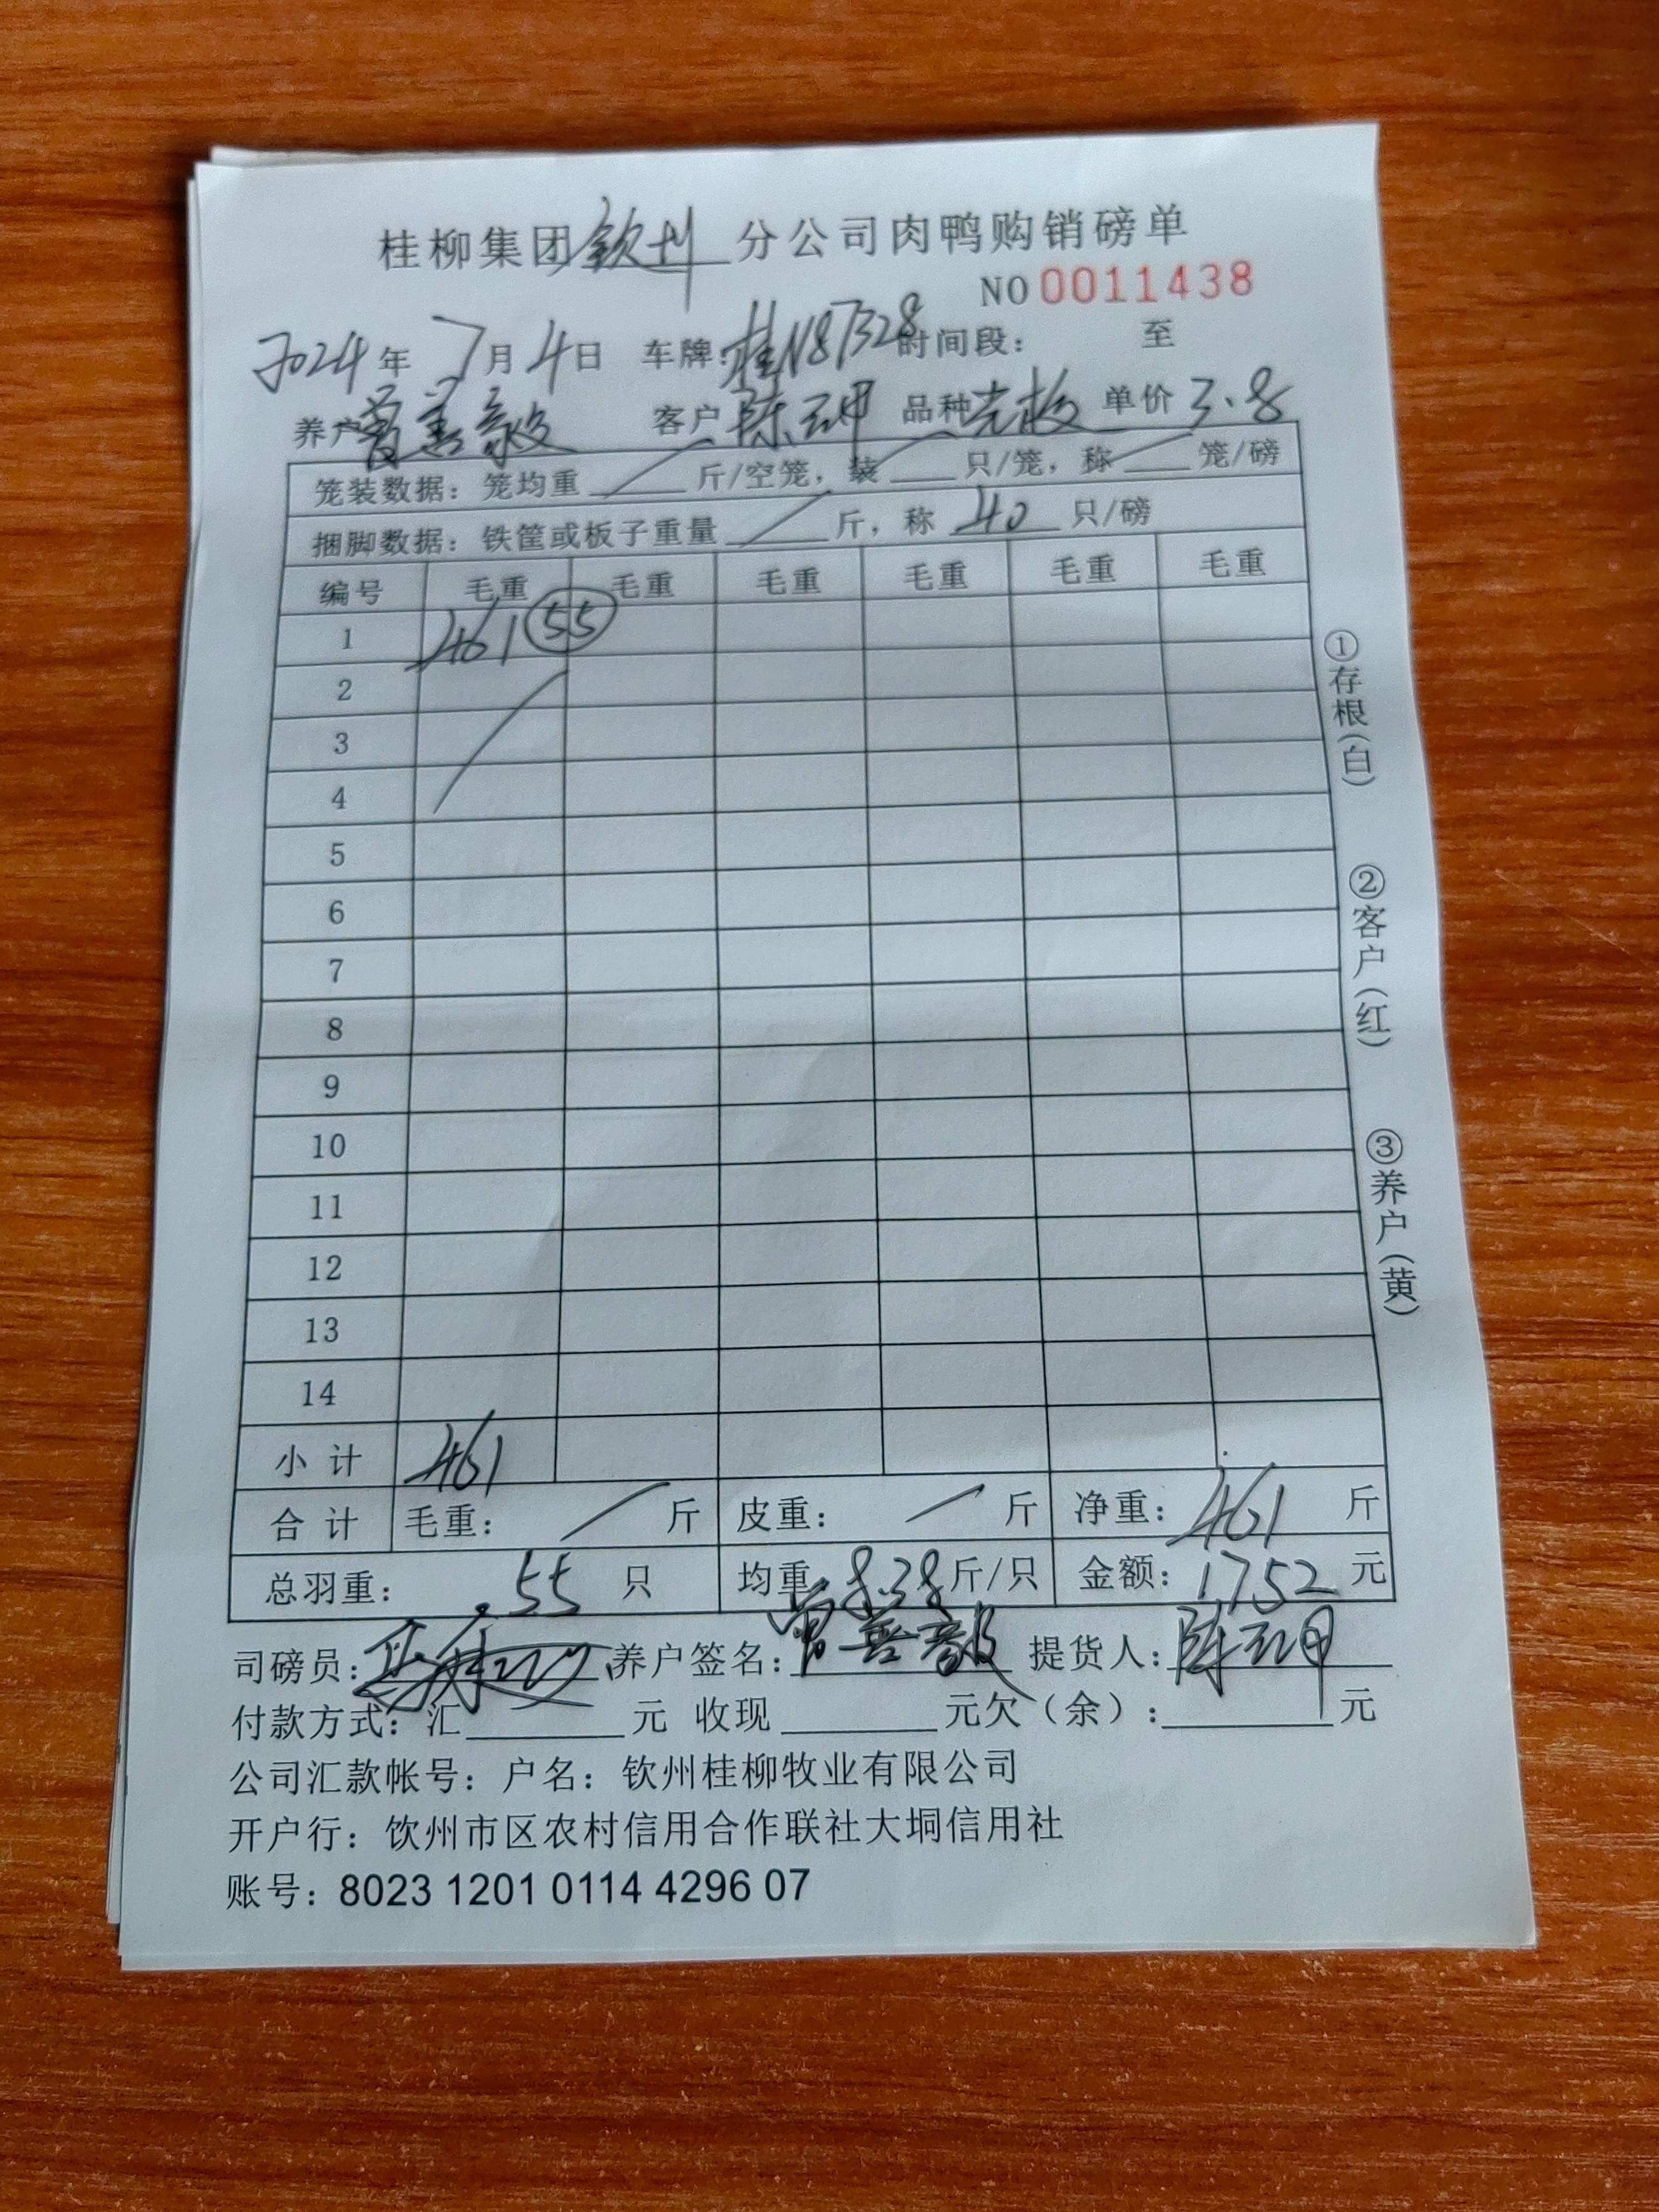 桂柳集团钦州分公司肉鸭购销磅单
NO 0011438
2024年7月4日 车牌:桂N87328 时间段: 至
养户曾善毅 客户陈 品种 单价3.8
笼装数据: 笼均重 / 斤/空笼, 装 / 只/笼, 称 / 笼/磅
捆脚数据: 铁筐或板子重量 / 斤, 称 40 只/磅
编号 毛重 毛重 毛重 毛重 毛重 毛重
1 461 55
2
3
4
5
6
7
8
9
10
11
12
13
14
小计 461
合计 毛重: / 斤 皮重: / 斤 净重: 461 斤
总羽重: 55 只 均重: 8.38 斤/只 金额: 1752 元
司磅员: 养户签名: 曾善毅 提货人: 陈
付款方式: 汇 元 收现 元欠(余): 元
公司汇款帐号: 户名: 钦州桂柳牧业有限公司
开户行: 钦州市区农村信用合作联社大垌信用社
账号: 8023 1201 0114 4296 07
①存根(白)
②客户(红)
③养户(黄)